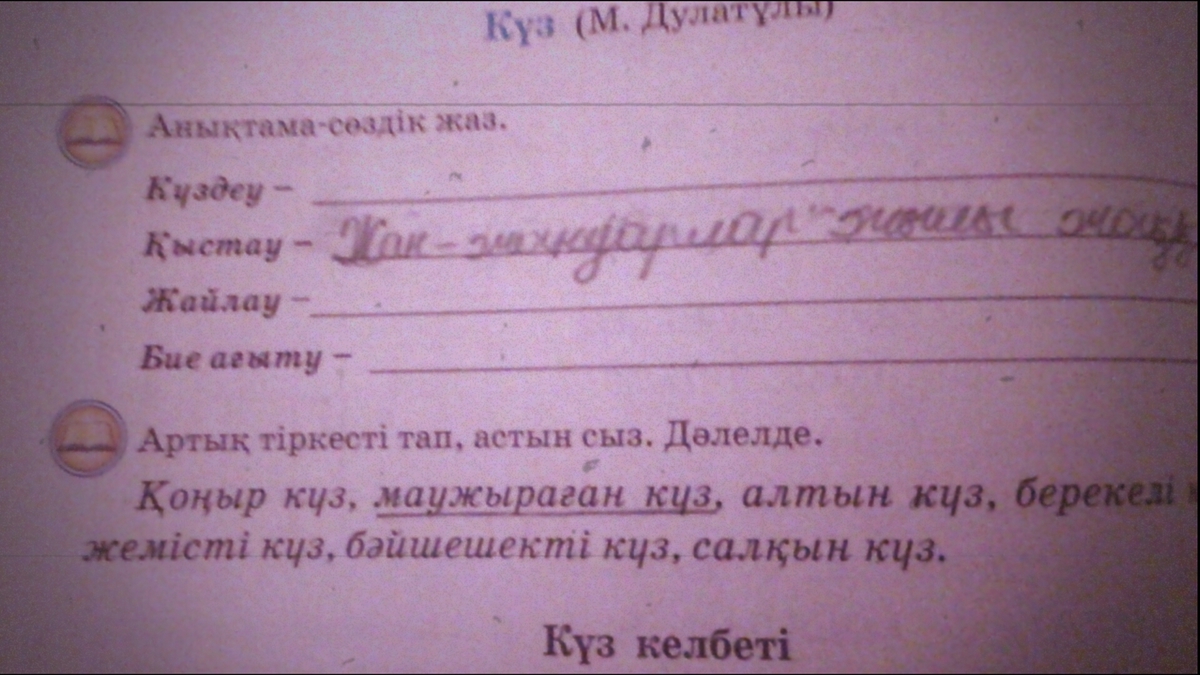 Күз (М. Дулатұлы)
Анықтама-сөздік жаз.
Күздеу –
Қыстау – Жан-жануарлар
Жайлау –
Бие ағыту –
Артық тіркесті тап, астын сыз. Дәлелде.
Қоңыр күз, маужыраған күз, алтын күз, берекелі
жемісті күз, бәйшешекті күз, салқын күз.
Күз келбеті